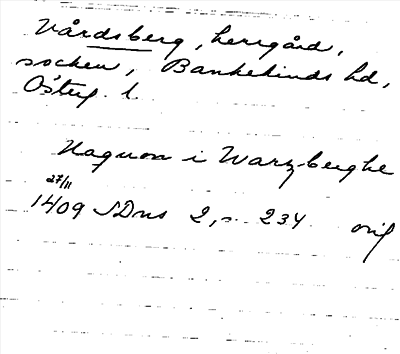 Vårdsberg, herrgård,
socken, Bankekinds hd,
Östergl. l.
Haquon i Warzberghe
27/11
1409 SDns 2, s. 234 orig